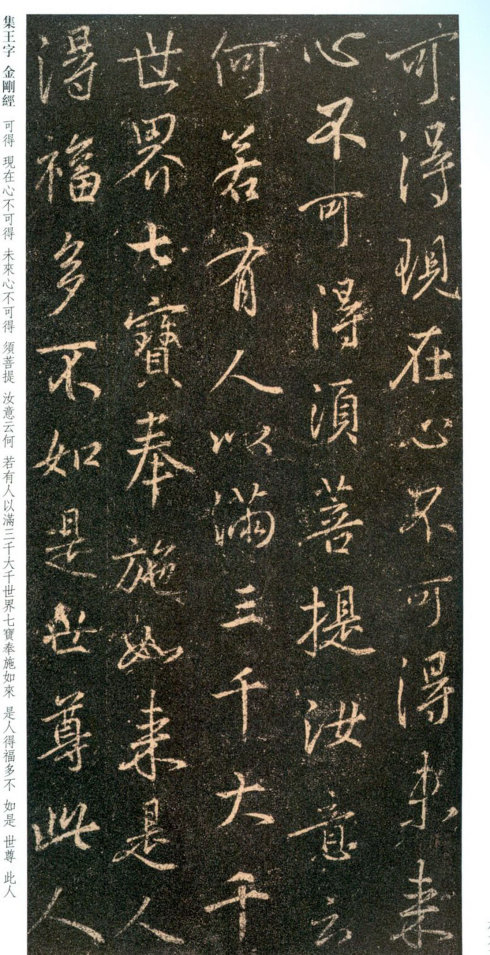 可得現在心不可得未来
心不可得須菩提汝意云
何若有人以滿三千大千
世界七寶奉施如来是人
得福多不如是世尊此人
集王字 金剛經 可得 現在心不可得 未來心不可得 須菩提 汝意云何 若有人以滿三千大千世界七寶奉施如來 是人得福多不 如是 世尊 此人